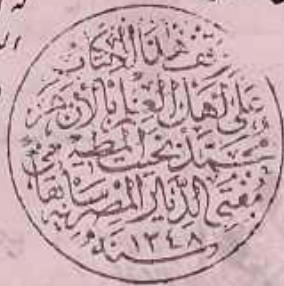 وقف هذا الكتاب
على أهل العلم بالأزهر
محمد بخيت المطيعي
مفتي الديار المصرية سابقا
سنة ١٢٤٨